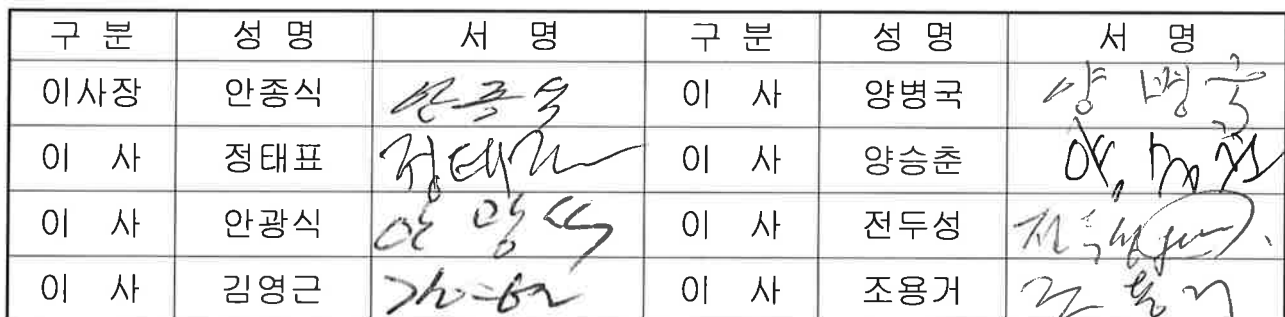 구 분 성 명 서 명 구 분 성 명 서 명
이사장 안종식 안종식 이 사 양병국 양병국
이 사 정태표 정태표 이 사 양승춘
이 사 안광식 안광식 이 사 전두성 전두성
이 사 김영근 이 사 조용거 조용거